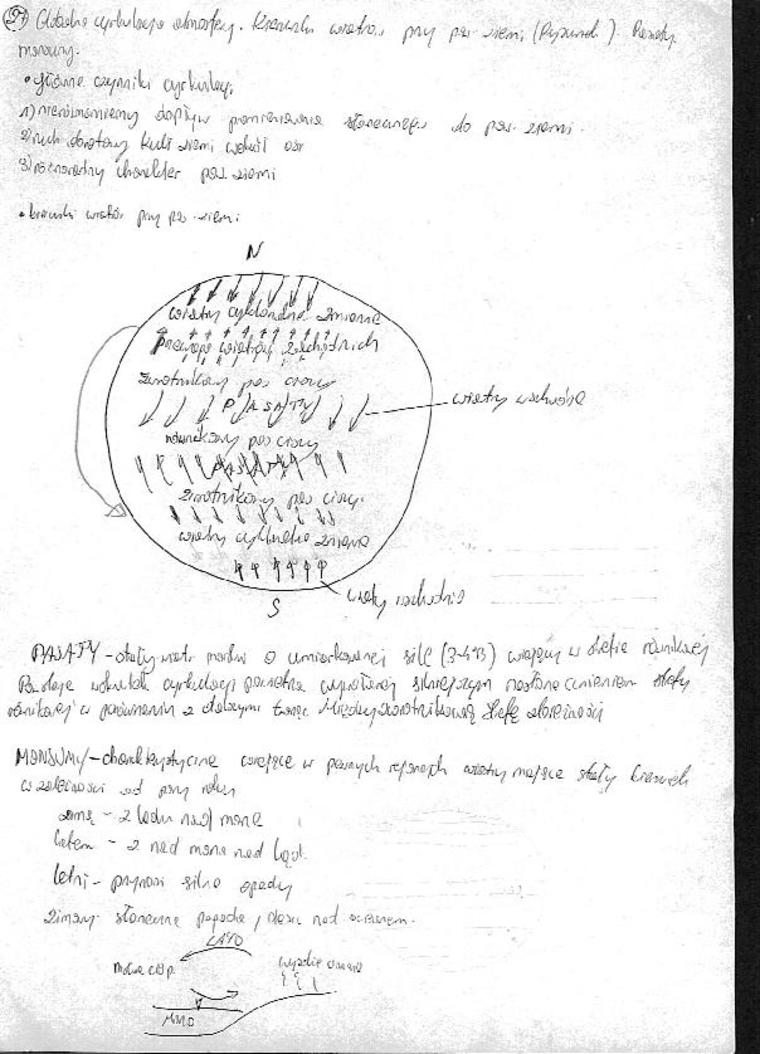 27 Globalna cyrkulacja atmosfery. Kierunki wiatrów przy pow. ziemi (Rysunek). Pasaty,
monsuny.
• główne czynniki cyrkulacji
1) nierównomierny dopływ promieniowania słonecznego do pow. ziemi.
2) ruch obrotowy kuli ziemi wokół osi
3) różnorodny charakter pow. ziemi
• kierunki wiatrów przy pow. ziemi
N
wiatry cyklonalne zmienne
Przewaga wiatrów zachodnich
Zwrotnikowy pas ciszy
PASATY
wiatry wschodnie
równikowy pas ciszy
PASATY
Zwrotnikowy pas ciszy
wiatry cyklonalne zmienne
wiatry wschodnie
S
PASATY - stały wiatr morski o umiarkowanej sile (3-4°B) wiejący w strefie równikowej
Powstaje wskutek cyrkulacji powietrza wywołanej silniejszym nasłonecznieniem strefy
równikowej w porównaniu z dalszymi tworząc Międzyzwrotnikową strefę zbieżności
MONSUNY - charakterystyczne wiejące w pewnych rejonach wiatry mające stały kierunek
w zależności od pory roku
zimą - z lądu nad morze
latem - z nad morza nad ląd.
letni - przynosi silne opady
zimowy słoneczna pogoda, deszcz nad oceanem.
LATO